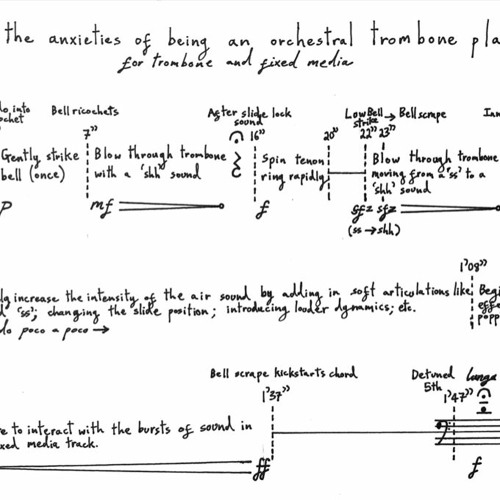 the anxieties of being an orchestral trombone pla
for trombone and fixed media
do into
Bell ricochets
After slide lock
sound
Low Bell → Bell scrape
strike
7"
16"
20"
22" 23"
Gently strike
bell (once)
Blow through trombone
with a 'shh' sound
Spin tenon
ring rapidly
Blow through trombone
moving from a 'ss' to a
'shh' sound
p
mf
f
sfz sfz
(ss → shh)
1'08"
increase the intensity of the air sound by adding in soft articulations like
'ss'; changing the slide position; introducing louder dynamics; etc.
do poco a poco →
Bell scrape kickstarts chord
Detuned
5th
lunga
1'37"
1'47"
e to interact with the bursts of sound in
xed media track.
ff
f